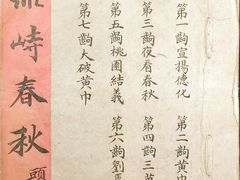 第一齣宣揚德化 第二齣黃巾
第三齣夜看春秋 第四齣三
第五齣桃園結義 第六齣劉
第七齣大破黃巾
峙春秋